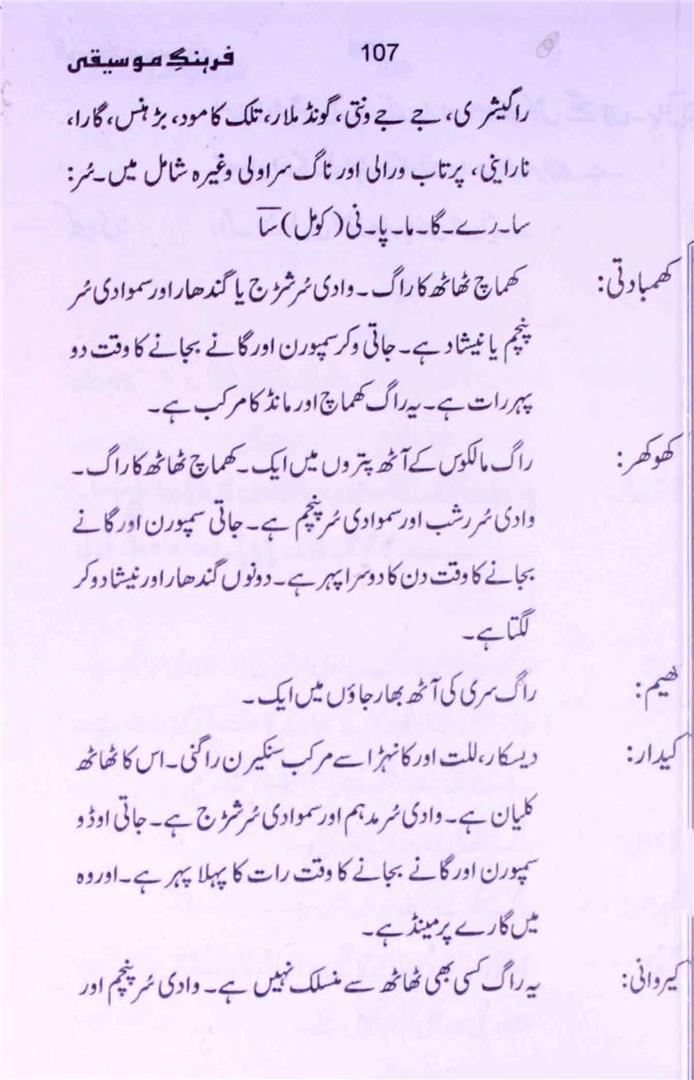 107 فرہنگِ موسیقی
راگیشری، جے جے ونتی، گونڈ ملار، تلک کامود، بڑہنس، گارا،
ناراینی، پرتاب ورالی اور ناگ سراولی وغیرہ شامل میں۔ سُر:
سا۔ رے۔ گا۔ ما۔ پا۔ نی (کومل) سَا
کھمبادتی: کھماچ ٹھاٹھ کا راگ۔ وادی سُر شڑج یا گندھار اور سموادی سُر
پنچم یا نیشاد ہے۔ جاتی وکر سمپورن اور گانے بجانے کا وقت دو
پہر رات ہے۔ یہ راگ کھماچ اور مانڈ کا مرکب ہے۔
کھوکھر: راگ مالکوس کے آٹھ پتروں میں ایک۔ کھماچ ٹھاٹھ کا راگ۔
وادی سُر رشب اور سموادی سُر پنچم ہے۔ جاتی سمپورن اور گانے
بجانے کا وقت دن کا دوسرا پہر ہے۔ دونوں گندھار اور نیشاد وکر
لگتا ہے۔
کھیم: راگ سری کی آٹھ بھارجاؤں میں ایک۔
کیدار: دیسکار، للت اور کانہڑا سے مرکب سنکیرن راگنی۔ اس کا ٹھاٹھ
کلیان ہے۔ وادی سُر مدہم اور سموادی سُر شڑج ہے۔ جاتی اوڈو
سمپورن اور گانے بجانے کا وقت رات کا پہلا پہر ہے۔ اور وہ
میں گا رے پر مینڈ ہے۔
کیروانی: یہ راگ کسی بھی ٹھاٹھ سے منسلک نہیں ہے۔ وادی سُر پنچم اور